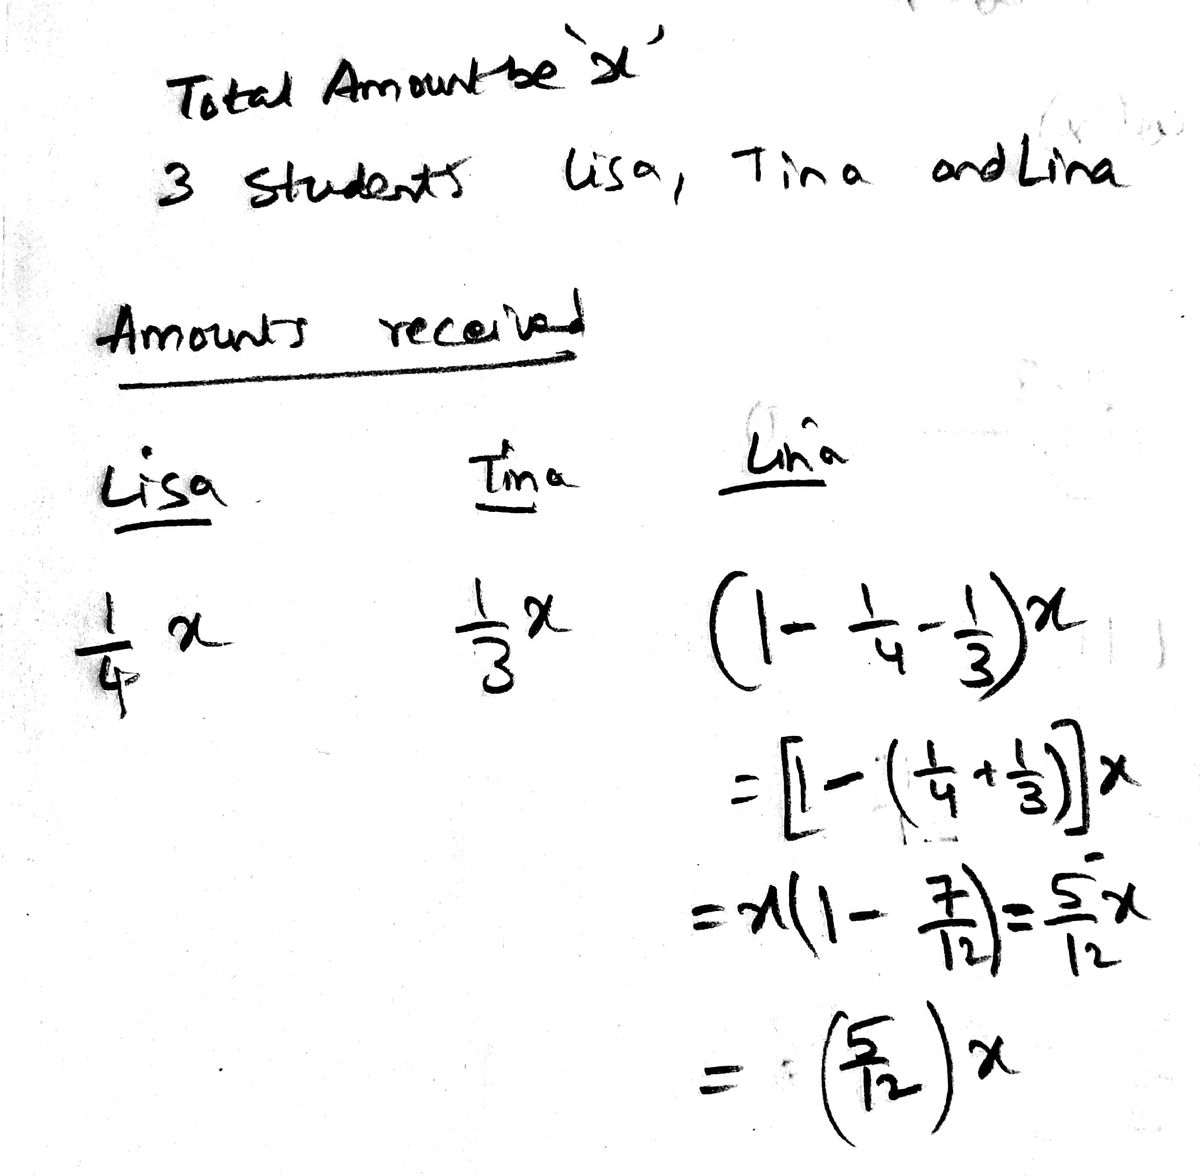 Total Amount be 'x'
3 Students Lisa, Tina and Lina
Amounts received
Lisa Tina Lina
1/4 x 1/3 x (1 - 1/4 - 1/3)x
= [1 - (1/4 + 1/3)]x
= x(1 - 7/12) = 5/12 x
= (5/12) x